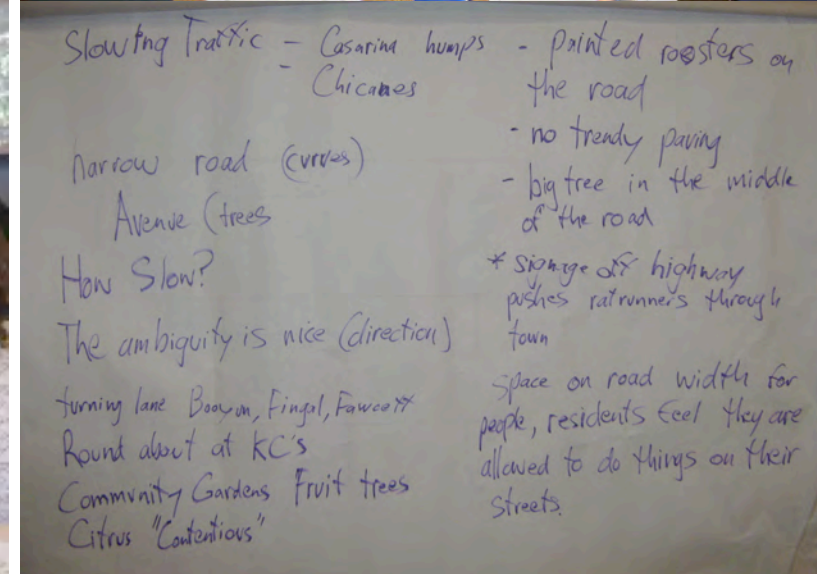 Slowing Traffic - Casarina humps
- Chicanes
narrow road (curves)
Avenue (trees
How Slow?
The ambiguity is nice (direction)
turning lane Booyun, Fingal, Fawcett
Round about at KC's
Community Gardens Fruit trees
Citrus "Contentious"
- Painted roosters on
the road
- no trendy paving
- big tree in the middle
of the road
* signage off highway
pushes ratrunners through
town
space on road width for
people, residents feel they are
allowed to do things on their
streets.